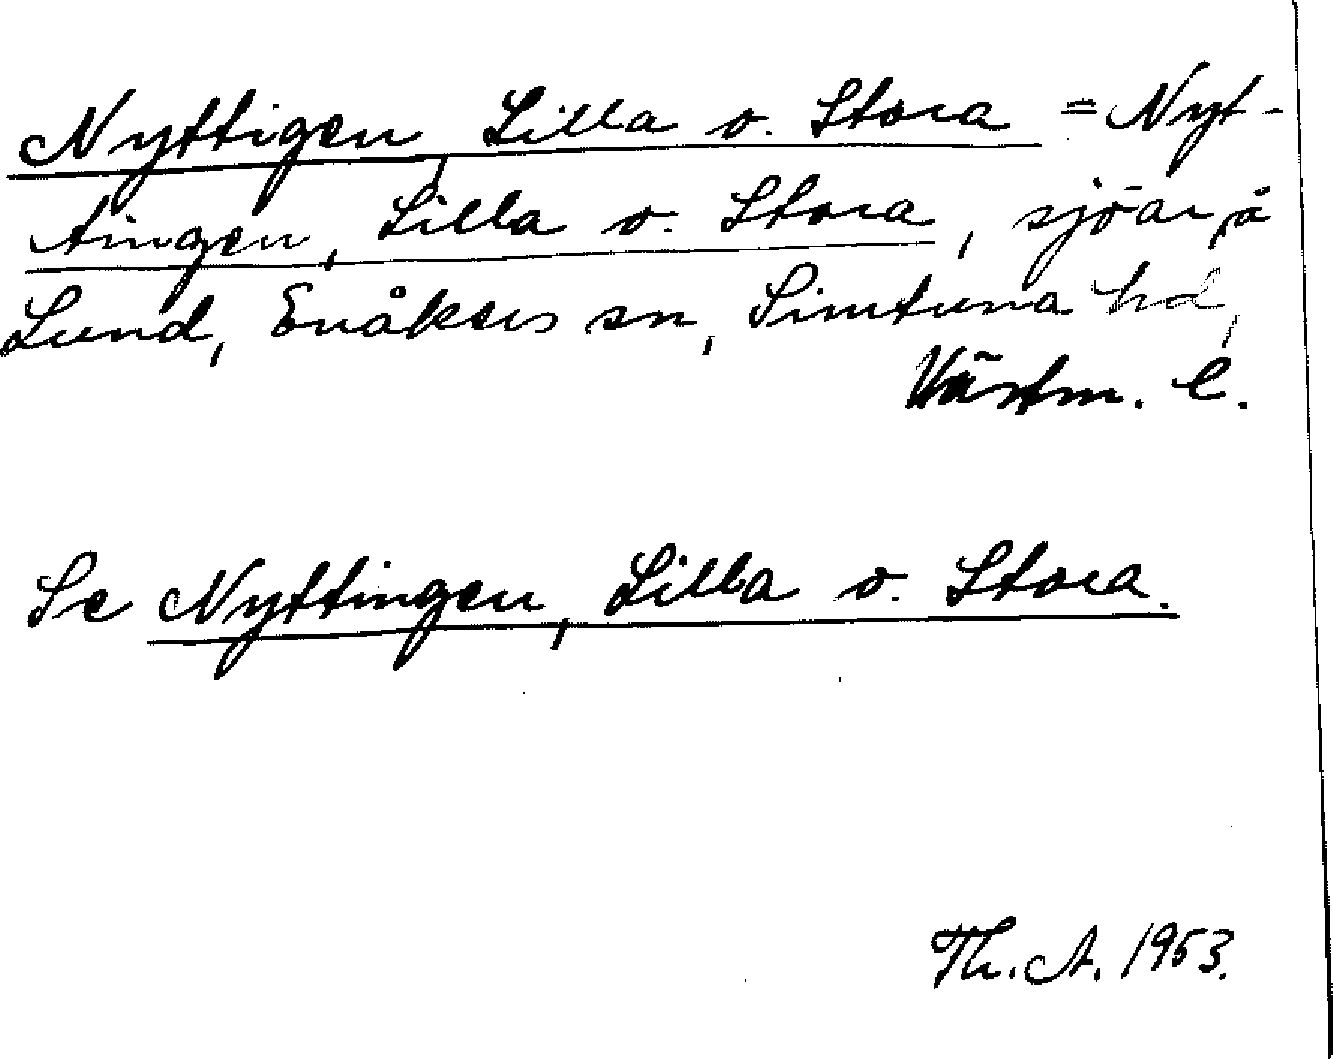 Nyttigen, Lilla o. Stora = Nyt-
tingen, Lilla o. Stora, sjöar, å
Lund, Enåkers sn, Simtuna hd,
Västm. l.
Se Nyttingen, Lilla o. Stora.
Th. A. 1953.